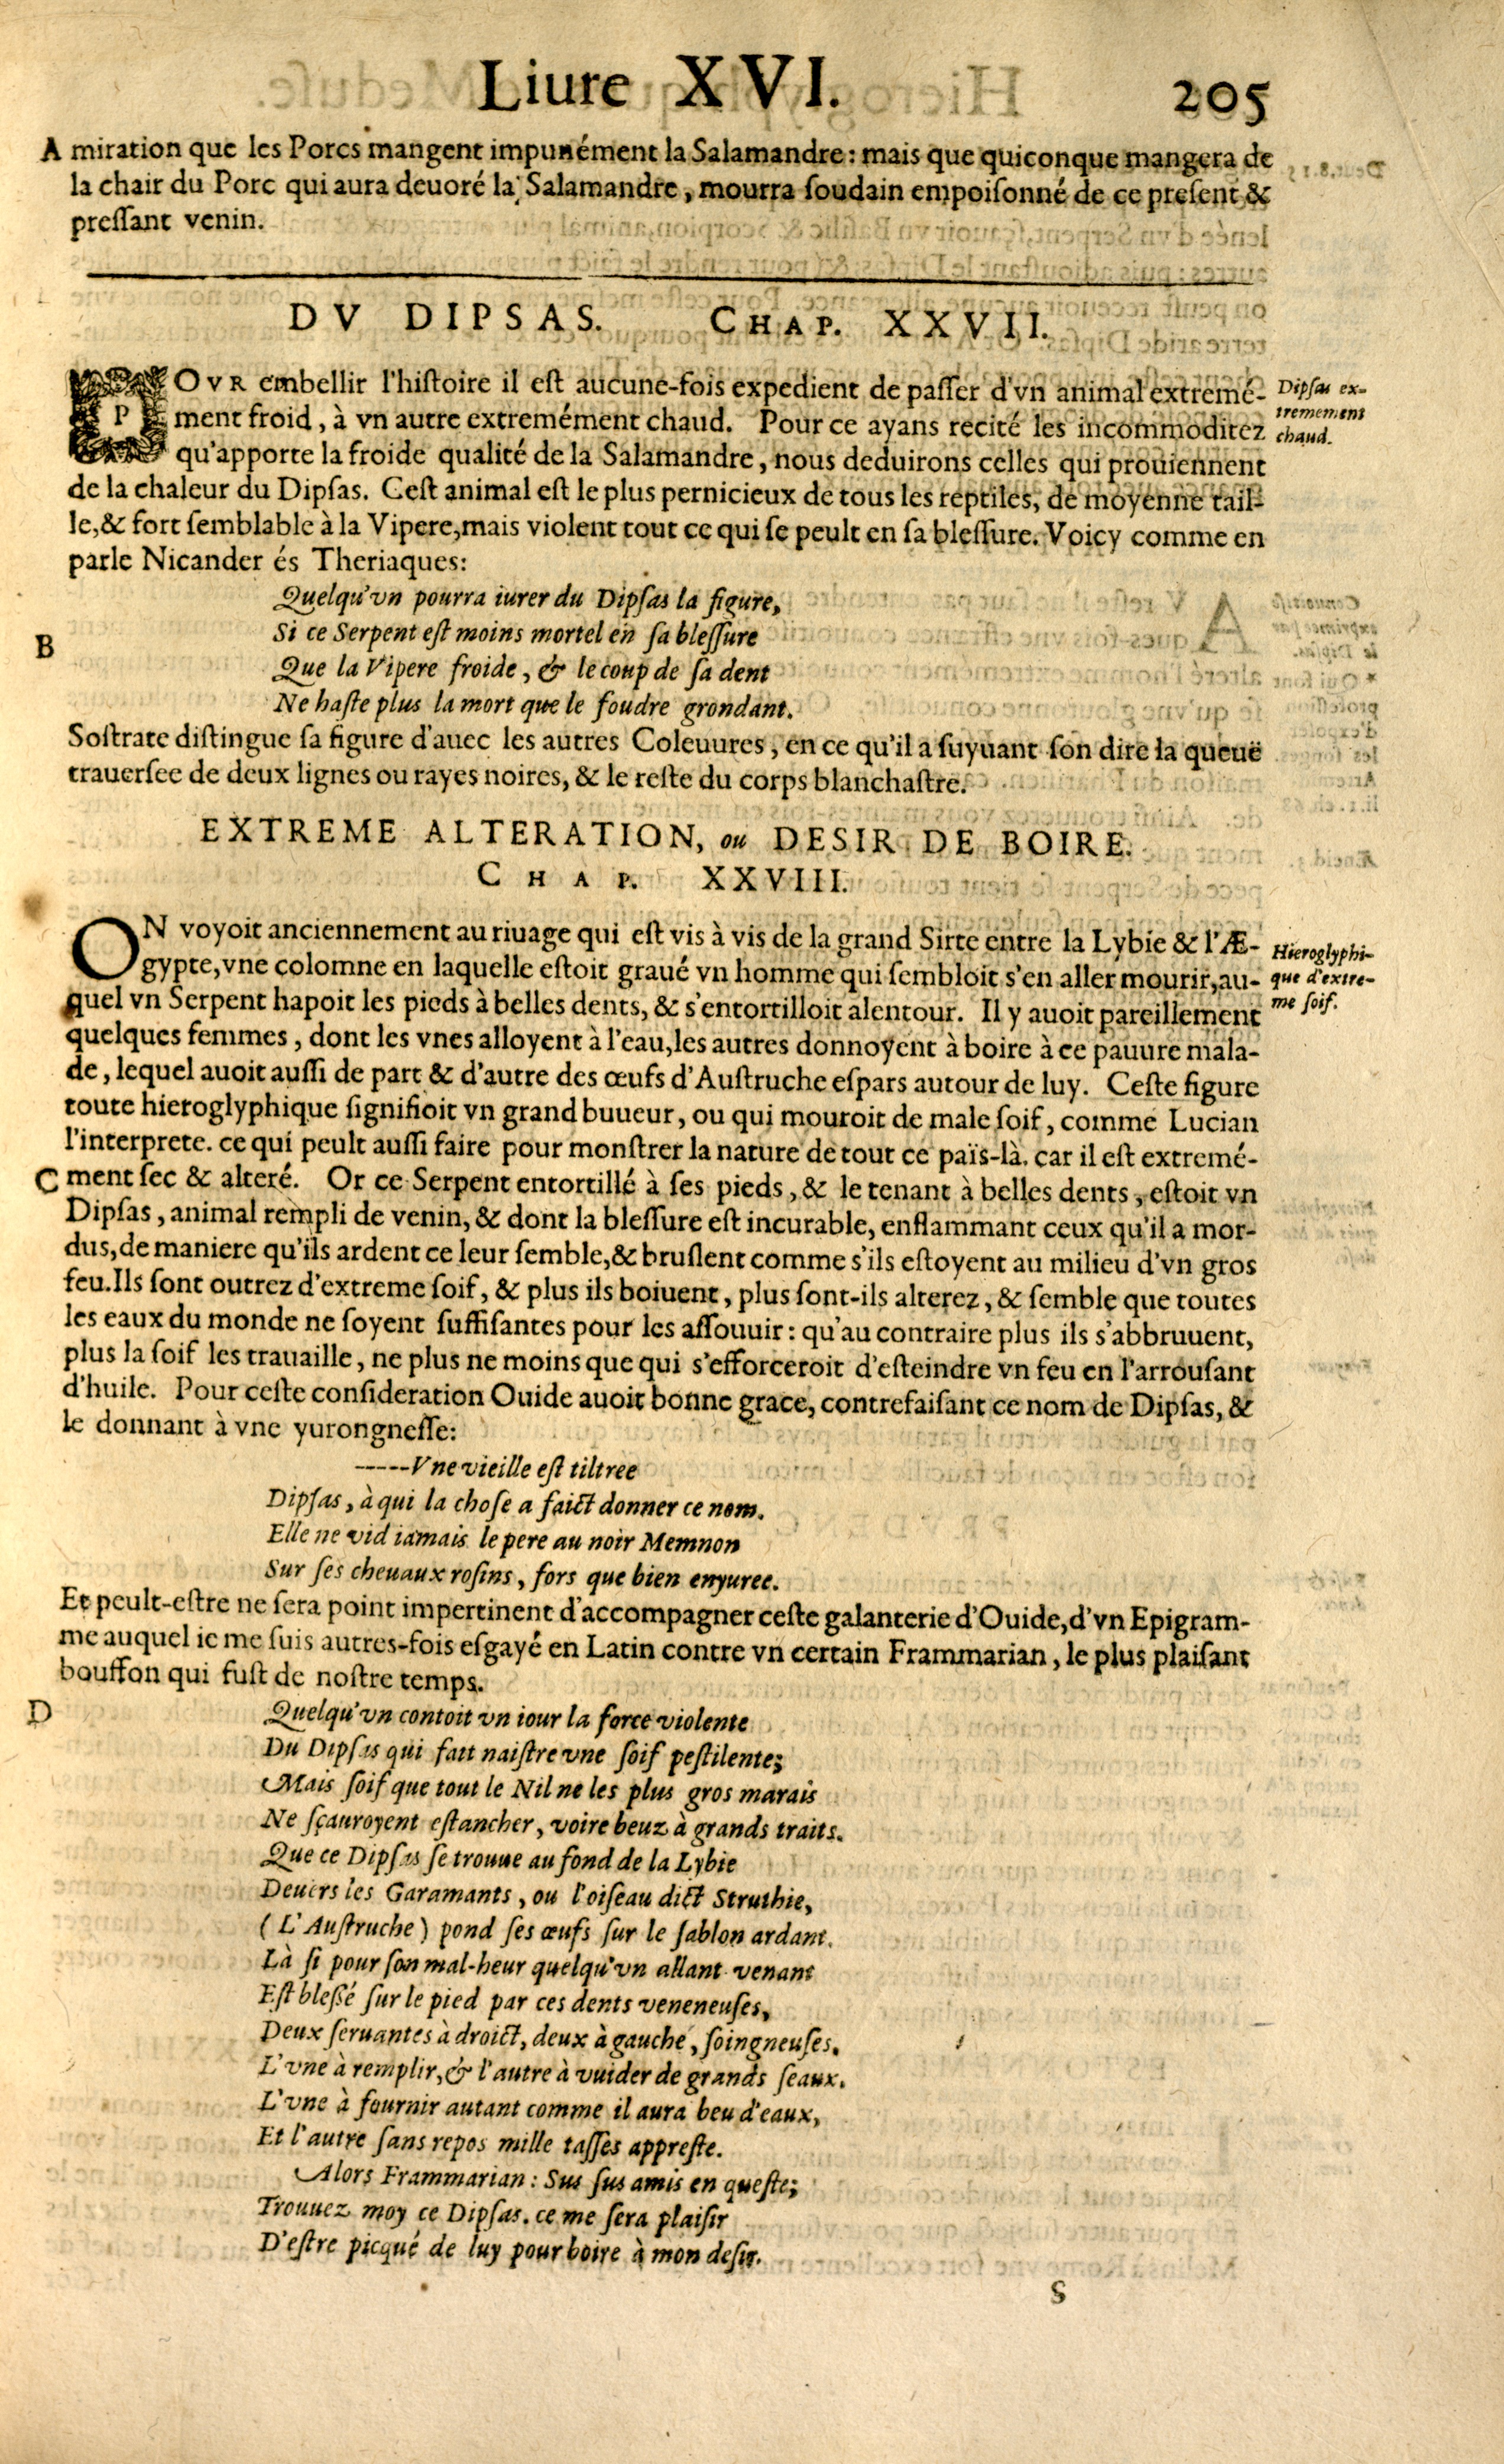 Liure XVI. 205
A miration que les Porcs mangent impunément la Salamandre: mais que quiconque mangera de
la chair du Porc qui aura deuoré la Salamandre, mourra soudain empoisonné de ce present &
pressant venin.
DV DIPSAS. CHAP. XXVII.
POVR embellir l'histoire il est aucune-fois expedient de passer d'vn animal extremé-
ment froid, à vn autre extremément chaud. Pour ce ayans recité les incommoditez
qu'apporte la froide qualité de la Salamandre, nous deduirons celles qui prouiennent
de la chaleur du Dipsas. Cest animal est le plus pernicieux de tous les reptiles, de moyenne tail-
le, & fort semblable à la Vipere, mais violent tout ce qui se peult en sa blessure. Voicy comme en
parle Nicander és Theriaques:
Dipsas ex-
tremement
chaud.
Quelqu'vn pourra iurer du Dipsas la figure,
B Si ce Serpent est moins mortel en sa blessure
Que la Vipere froide, & le coup de sa dent
Ne haste plus la mort que le foudre grondant.
Sostrate distingue sa figure d'auec les autres Coleuures, en ce qu'il a suyuant son dire la queuë
trauersee de deux lignes ou rayes noires, & le reste du corps blanchastre.
EXTREME ALTERATION, ou DESIR DE BOIRE.
CHAP. XXVIII.
ON voyoit anciennement au riuage qui est vis à vis de la grand Sirte entre la Lybie & l'Æ-
gypte, vne colomne en laquelle estoit graué vn homme qui sembloit s'en aller mourir, au-
quel vn Serpent hapoit les pieds à belles dents, & s'entortilloit alentour. Il y auoit pareillement
quelques femmes, dont les vnes alloyent à l'eau, les autres donnoyent à boire à ce pauure mala-
de, lequel auoit aussi de part & d'autre des œufs d'Austruche espars autour de luy. Ceste figure
toute hieroglyphique signifioit vn grand buueur, ou qui mouroit de male soif, comme Lucian
l'interprete. ce qui peult aussi faire pour monstrer la nature de tout ce païs-là. car il est extremé-
C ment sec & alteré. Or ce Serpent entortillé à ses pieds, & le tenant à belles dents, estoit vn
Dipsas, animal rempli de venin, & dont la blessure est incurable, enflammant ceux qu'il a mor-
dus, de maniere qu'ils ardent ce leur semble, & bruslent comme s'ils estoyent au milieu d'vn gros
feu. Ils sont outrez d'extreme soif, & plus ils boiuent, plus sont-ils alterez, & semble que toutes
les eaux du monde ne soyent suffisantes pour les assouuir: qu'au contraire plus ils s'abbruuent,
plus la soif les trauaille, ne plus ne moins que qui s'efforceroit d'esteindre vn feu en l'arrousant
d'huile. Pour ceste consideration Ouide auoit bonne grace, contrefaisant ce nom de Dipsas, &
le donnant à vne yurongnesse:
Hieroglyphi-
que d'extre-
me soif.
-----Vne vieille est tiltree
Dipsas, à qui la chose a faict donner ce nom.
Elle ne vid iamais le pere au noir Memnon
Sur ses cheuaux rosins, fors que bien enyuree.
Et peult-estre ne sera point impertinent d'accompagner ceste galanterie d'Ouide, d'vn Epigram-
me auquel ie me suis autres-fois esgayé en Latin contre vn certain Frammarian, le plus plaisant
bouffon qui fust de nostre temps.
D Quelqu'vn contoit vn iour la force violente
Du Dipsas qui fait naistre vne soif pestilente;
Mais soif que tout le Nil ne les plus gros marais
Ne sçauroyent estancher, voire beuz à grands traits.
Que ce Dipsas se trouue au fond de la Lybie
Deuers les Garamants, ou l'oiseau dict Struthie,
(L'Austruche) pond ses œufs sur le sablon ardant.
Là si pour son mal-heur quelqu'vn allant venant
Est blessé sur le pied par ces dents veneneuses,
Deux seruantes à droict, deux à gauche, soingneuses.
L'vne à remplir, & l'autre à vuider de grands seaux.
L'vne à fournir autant comme il aura beu d'eaux,
Et l'autre sans repos mille tasses appreste.
Alors Frammarian: Sus sus amis en queste;
Trouuez moy ce Dipsas. ce me sera plaisir
D'estre picqué de luy pour boire à mon desir.
S